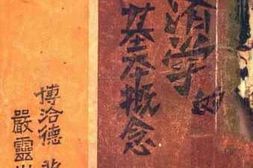 学的
基本概念
博洽德
嚴靈